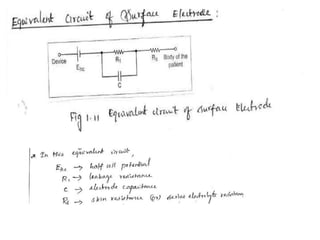 Equivalent Circuit of Surface Electrode :
Device
E_hc
R₁
C
R₂
Body of the patient
Fig 1.11 Equivalent circuit of surface Electrode
In this equivalent circuit,
E_hc → half cell potential
R₁ → leakage resistance
C → electrode capacitance
R₂ → skin resistance (or) device electrolyte resistance